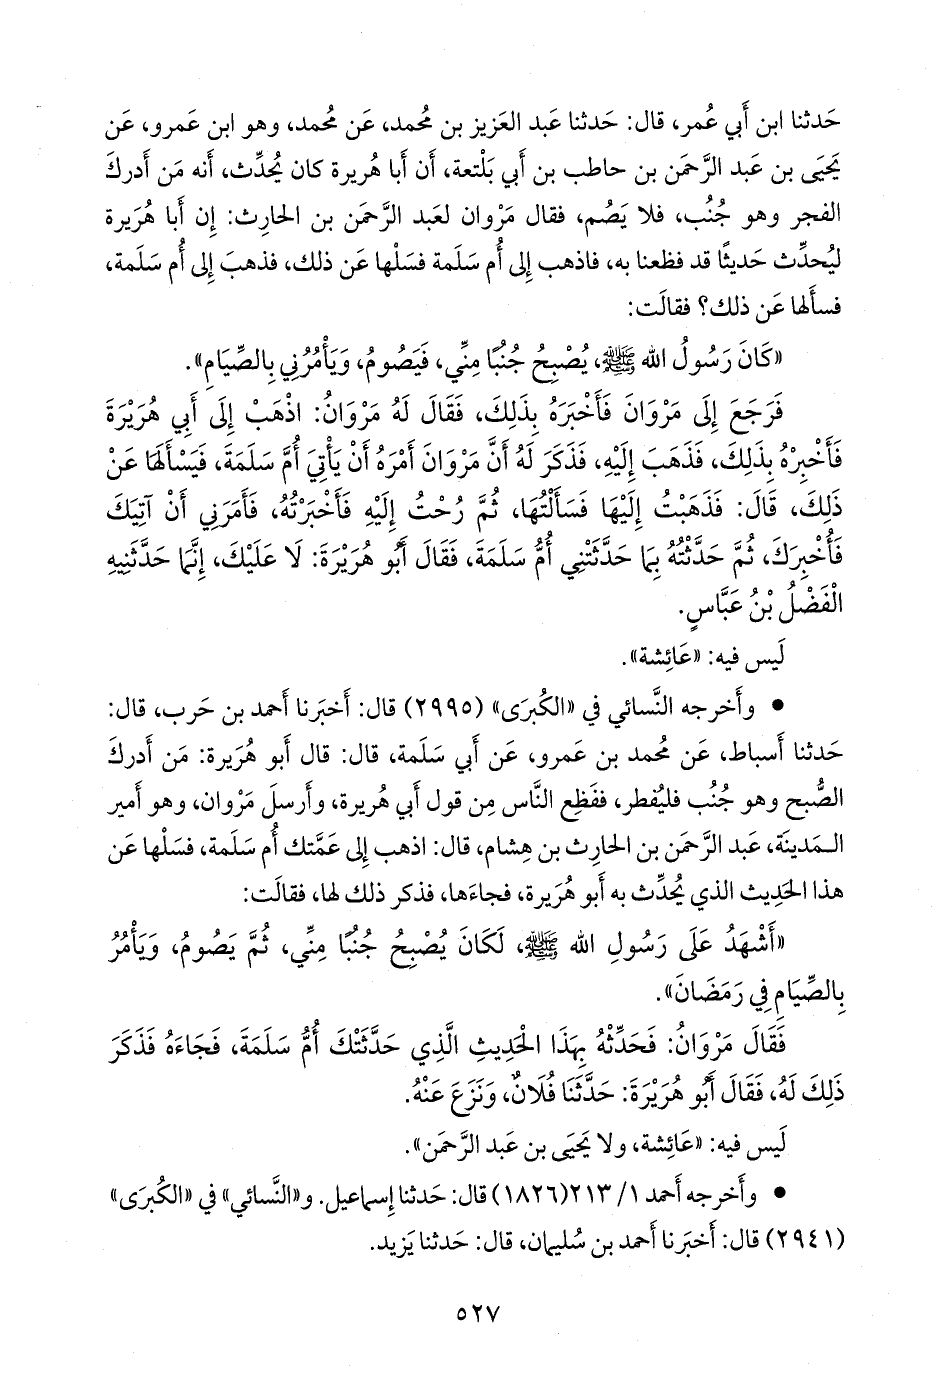 حَدثنا ابن أَبي عُمر، قال: حَدثنا عَبد العَزيز بن مُحمد، عَن مُحمد، وهو ابن عَمرو، عَن
يَحيَى بن عَبد الرَّحمَن بن حاطب بن أَبي بَلْتعة، أَن أَبا هُريرة كان يُحدِّث، أَنه مَن أَدركَ
الفجر وهو جُنُب، فلا يَصُم، فقال مَرْوان لعَبد الرَّحمَن بن الحارِث: إِن أَبا هُرَيرة
ليُحدِّث حَديثًا قد فظعنا به، فاذهب إِلى أُم سَلَمة فسَلْها عَن ذلك، فذهبَ إِلى أُم سَلَمة،
فسأَلها عَن ذلك؟ فقالَت:
«كَانَ رَسُولُ الله ﷺ، يُصْبِحُ جُنُبًا مِنِّي، فَيَصُومُ، وَيَأْمُرُنِي بِالصِّيَامِ».
فَرَجَعَ إِلَى مَرْوَانَ فَأَخْبَرَهُ بِذَلِكَ، فَقَالَ لَهُ مَرْوَانُ: اذْهَبْ إِلَى أَبِي هُرَيْرَةَ
فَأَخْبِرْهُ بِذَلِكَ، فَذَهَبَ إِلَيْهِ، فَذَكَرَ لَهُ أَنَّ مَرْوَانَ أَمَرَهُ أَنْ يَأْتِيَ أُمَّ سَلَمَةَ، فَيَسْأَلَهَا عَنْ
ذَلِكَ، قَالَ: فَذَهَبْتُ إِلَيْهَا فَسَأَلْتُهَا، ثُمَّ رُحْتُ إِلَيْهِ فَأَخْبَرْتُهُ، فَأَمَرَنِي أَنْ آتِيَكَ
فَأُخْبِرَكَ، ثُمَّ حَدَّثْتُهُ بِمَا حَدَّثَتْنِي أُمُّ سَلَمَةَ، فَقَالَ أَبُو هُرَيْرَةَ: لَا عَلَيْكَ، إِنَّمَا حَدَّثَنِيهِ
الْفَضْلُ بْنُ عَبَّاسٍ.
لَيس فيه: «عَائِشة».
• وأَخرجه النَّسائي في «الكُبرَى» (٢٩٩٥) قال: أَخبَرنا أَحمد بن حَرب، قال:
حَدثنا أَسباط، عَن مُحمد بن عَمرو، عَن أَبي سَلَمة، قال: قال أَبو هُرَيرة: مَن أَدركَ
الصُّبح وهو جُنُب فليُفطر، ففَظِع النَّاس مِن قول أَبي هُريرة، وأَرسلَ مَرْوان، وهو أَمير
الـمَدينَة، عَبد الرَّحمَن بن الحارِث بن هِشام، قال: اذهب إِلى عَمَّتك أُم سَلَمة، فسَلْها عَن
هذا الحَدِيث الذي يُحدِّث به أَبو هُرَيرة، فجاءَها، فذكر ذلك لها، فقالَت:
«أَشْهَدُ عَلَى رَسُولِ الله ﷺ، لَكَانَ يُصْبِحُ جُنُبًا مِنِّي، ثُمَّ يَصُومُ، وَيَأْمُرُ
بِالصِّيَامِ فِي رَمَضَانَ».
فَقَالَ مَرْوَانُ: فَحَدِّثْهُ بِهَذَا الْحَدِيثِ الَّذِي حَدَّثَتْكَ أُمُّ سَلَمَةَ، فَجَاءَهُ فَذَكَرَ
ذَلِكَ لَهُ، فَقَالَ أَبُو هُرَيْرَةَ: حَدَّثَنَا فُلَانٌ، وَنَزَعَ عَنْهُ.
لَيس فيه: «عَائِشة، ولا يَحيَى بن عَبد الرَّحمَن».
• وأَخرجه أَحمد ١/ ٢١٣(١٨٢٦) قال: حَدثنا إِسماعيل. و«النَّسائي» في «الكُبرَى»
(٢٩٤١) قال: أَخبَرنا أَحمد بن سُليمان، قال: حَدثنا يَزيد.
٥٢٧